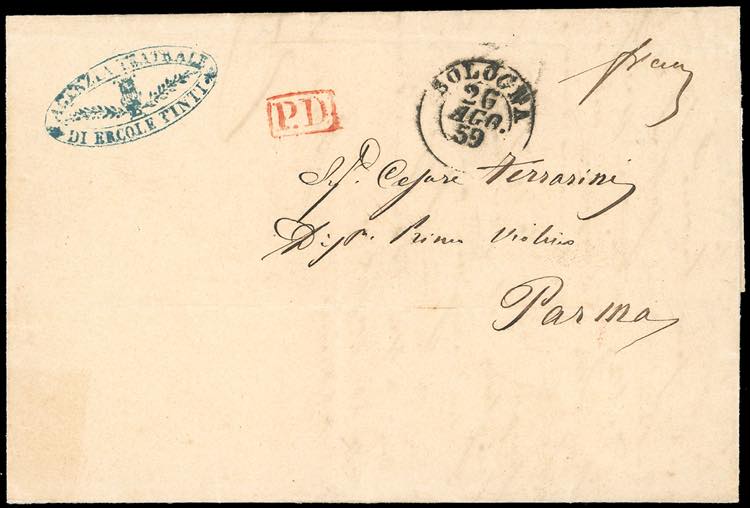 AGENZIA TEATRALE
DI ERCOLE TINTI
P.D.
BOLOGNA
26
AGO.
59
Sig. Cesare Ferrarini
Primo Violino
Parma